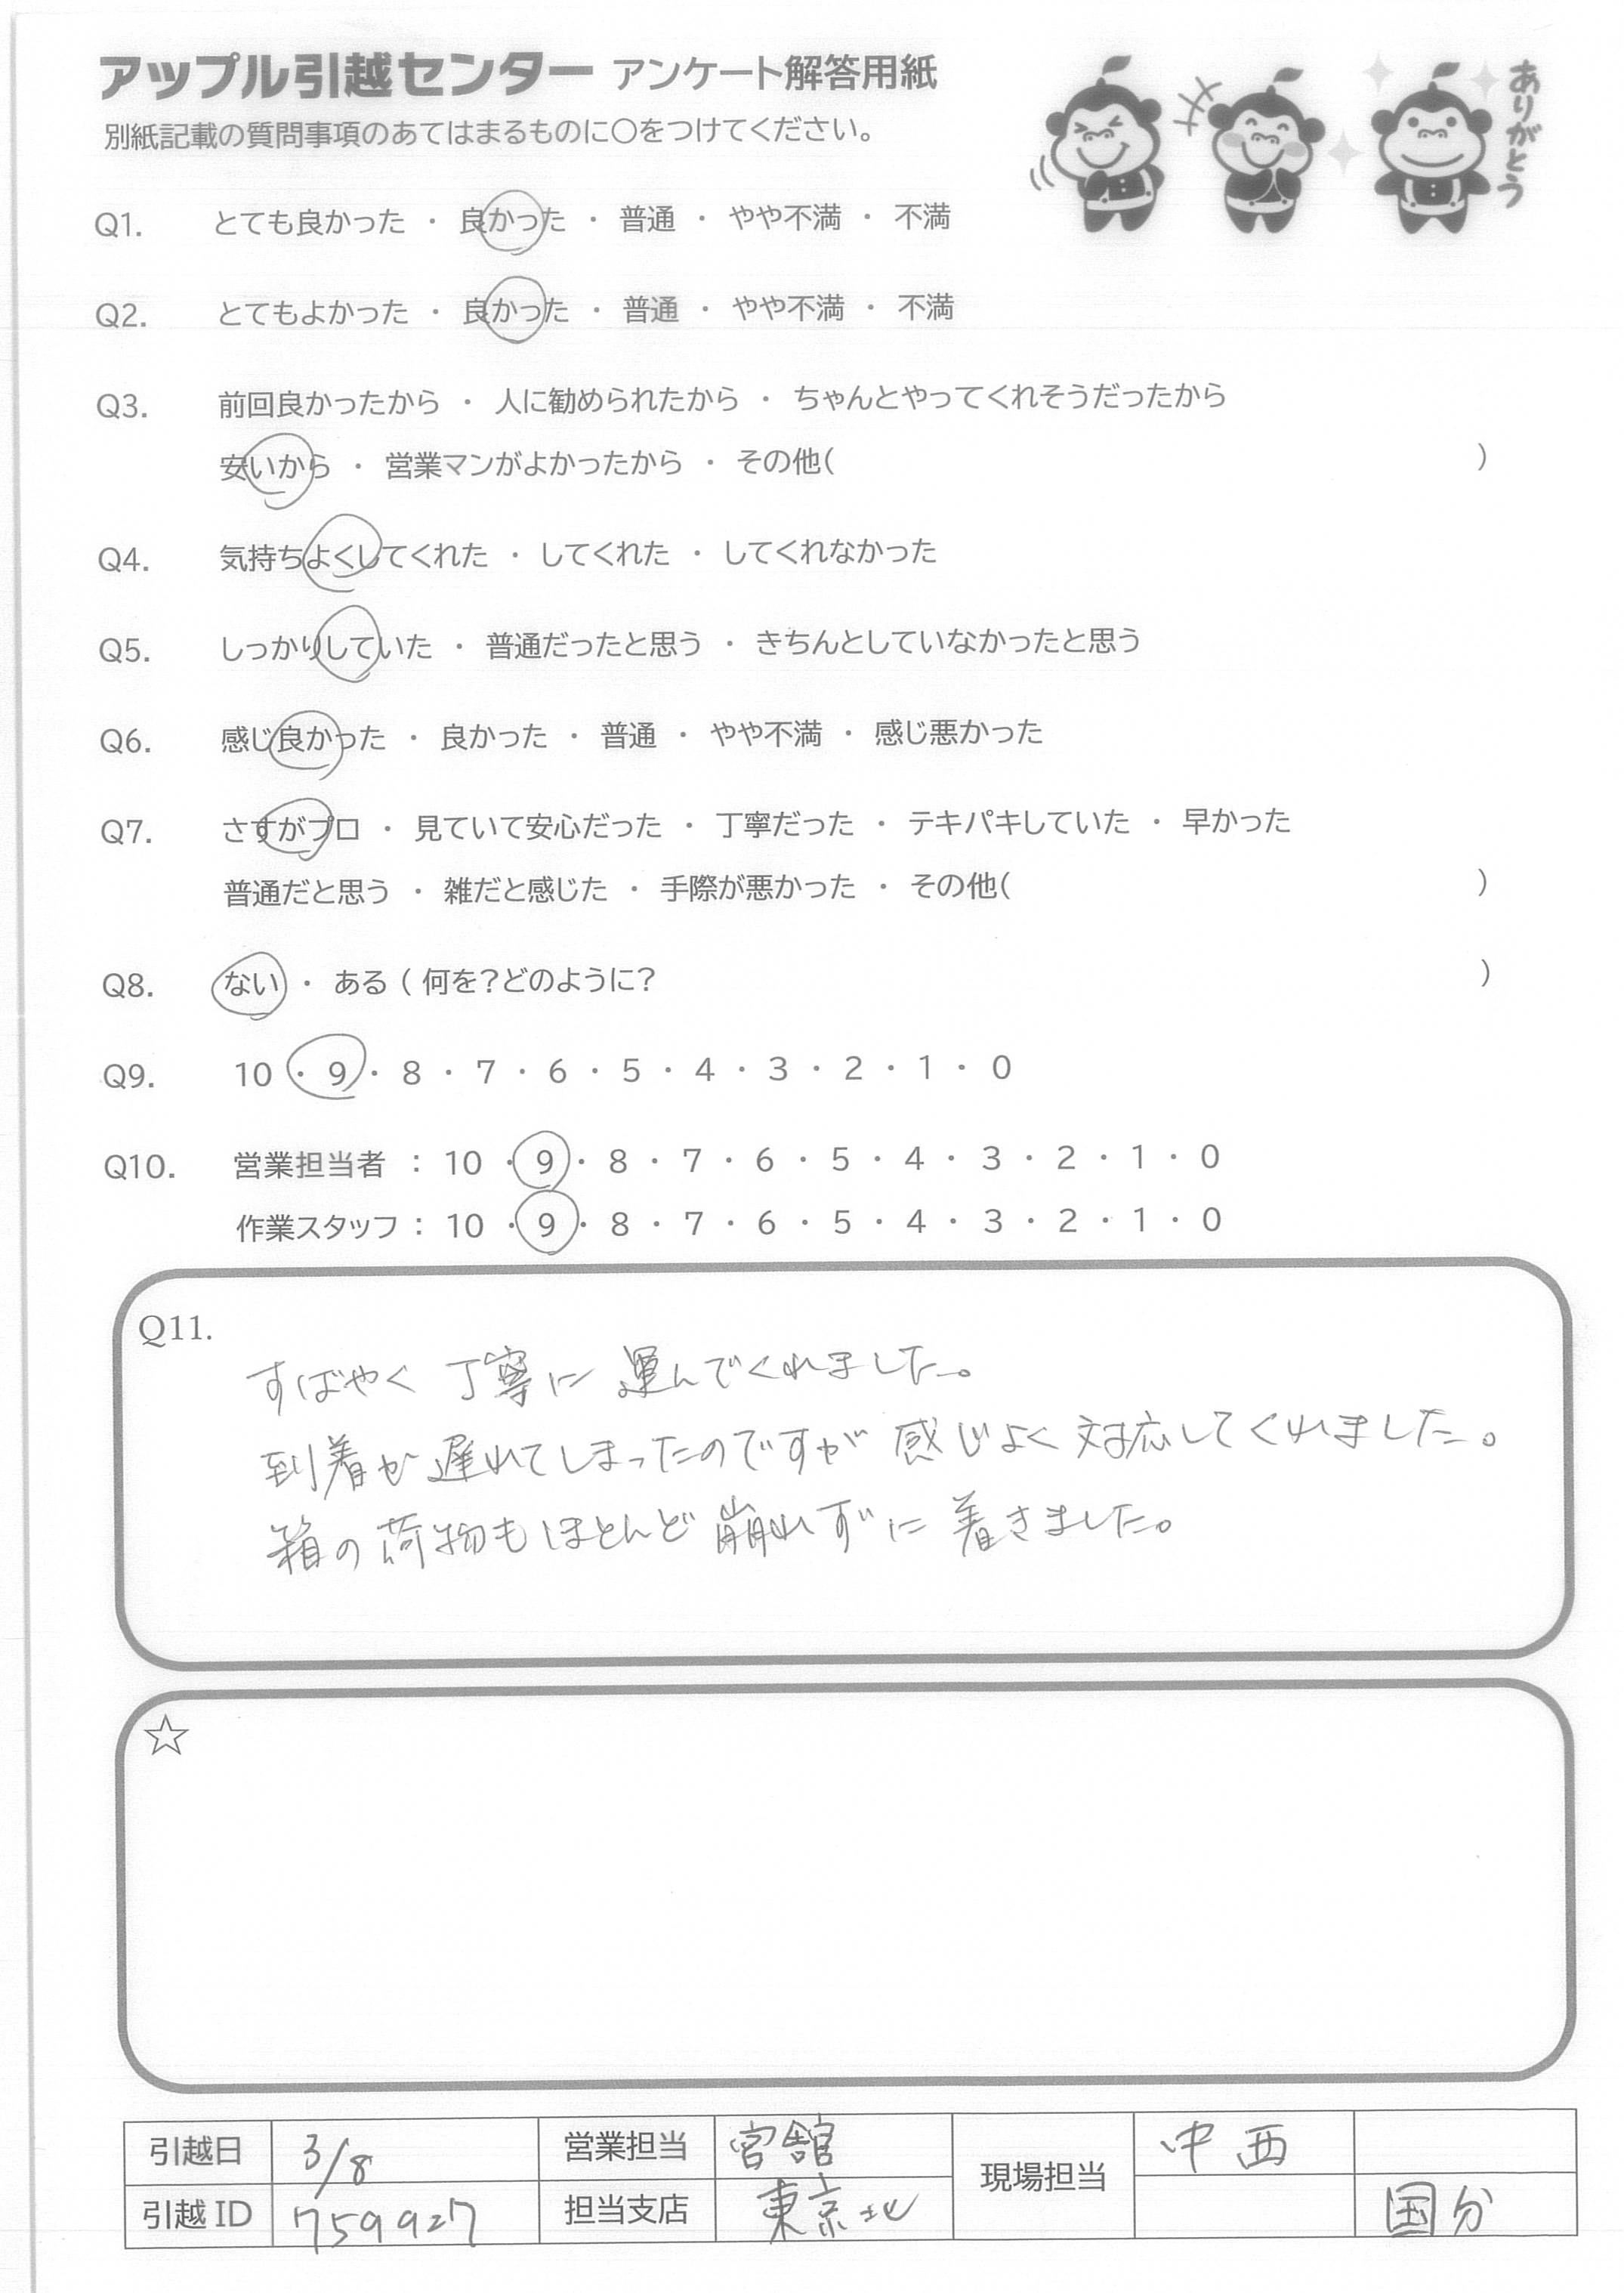 アップル引越センター アンケート解答用紙
ありがとう
別紙記載の質問事項のあてはまるものに○をつけてください。
Q1. とても良かった ・ 良かった ・ 普通 ・ やや不満 ・ 不満
Q2. とてもよかった ・ 良かった ・ 普通 ・ やや不満 ・ 不満
Q3. 前回良かったから ・ 人に勧められたから ・ ちゃんとやってくれそうだったから
安いから ・ 営業マンがよかったから ・ その他( )
Q4. 気持ちよくしてくれた ・ してくれた ・ してくれなかった
Q5. しっかりしていた ・ 普通だったと思う ・ きちんとしていなかったと思う
Q6. 感じ良かった ・ 良かった ・ 普通 ・ やや不満 ・ 感じ悪かった
Q7. さすがプロ ・ 見ていて安心だった ・ 丁寧だった ・ テキパキしていた ・ 早かった
普通だと思う ・ 雑だと感じた ・ 手際が悪かった ・ その他( )
Q8. ない ・ ある ( 何を?どのように? )
Q9. 10 ・ 9 ・ 8 ・ 7 ・ 6 ・ 5 ・ 4 ・ 3 ・ 2 ・ 1 ・ 0
Q10. 営業担当者 : 10 ・ 9 ・ 8 ・ 7 ・ 6 ・ 5 ・ 4 ・ 3 ・ 2 ・ 1 ・ 0
作業スタッフ : 10 ・ 9 ・ 8 ・ 7 ・ 6 ・ 5 ・ 4 ・ 3 ・ 2 ・ 1 ・ 0
Q11.
すばやく 丁寧に 運んでくれました。
到着が遅れてしまったのですが 感じよく 対応してくれました。
箱の荷物もほとんど崩れずに着きました。
☆
引越日 3/8 営業担当 宮舘 現場担当 中西
引越ID 759927 担当支店 東京北 国分